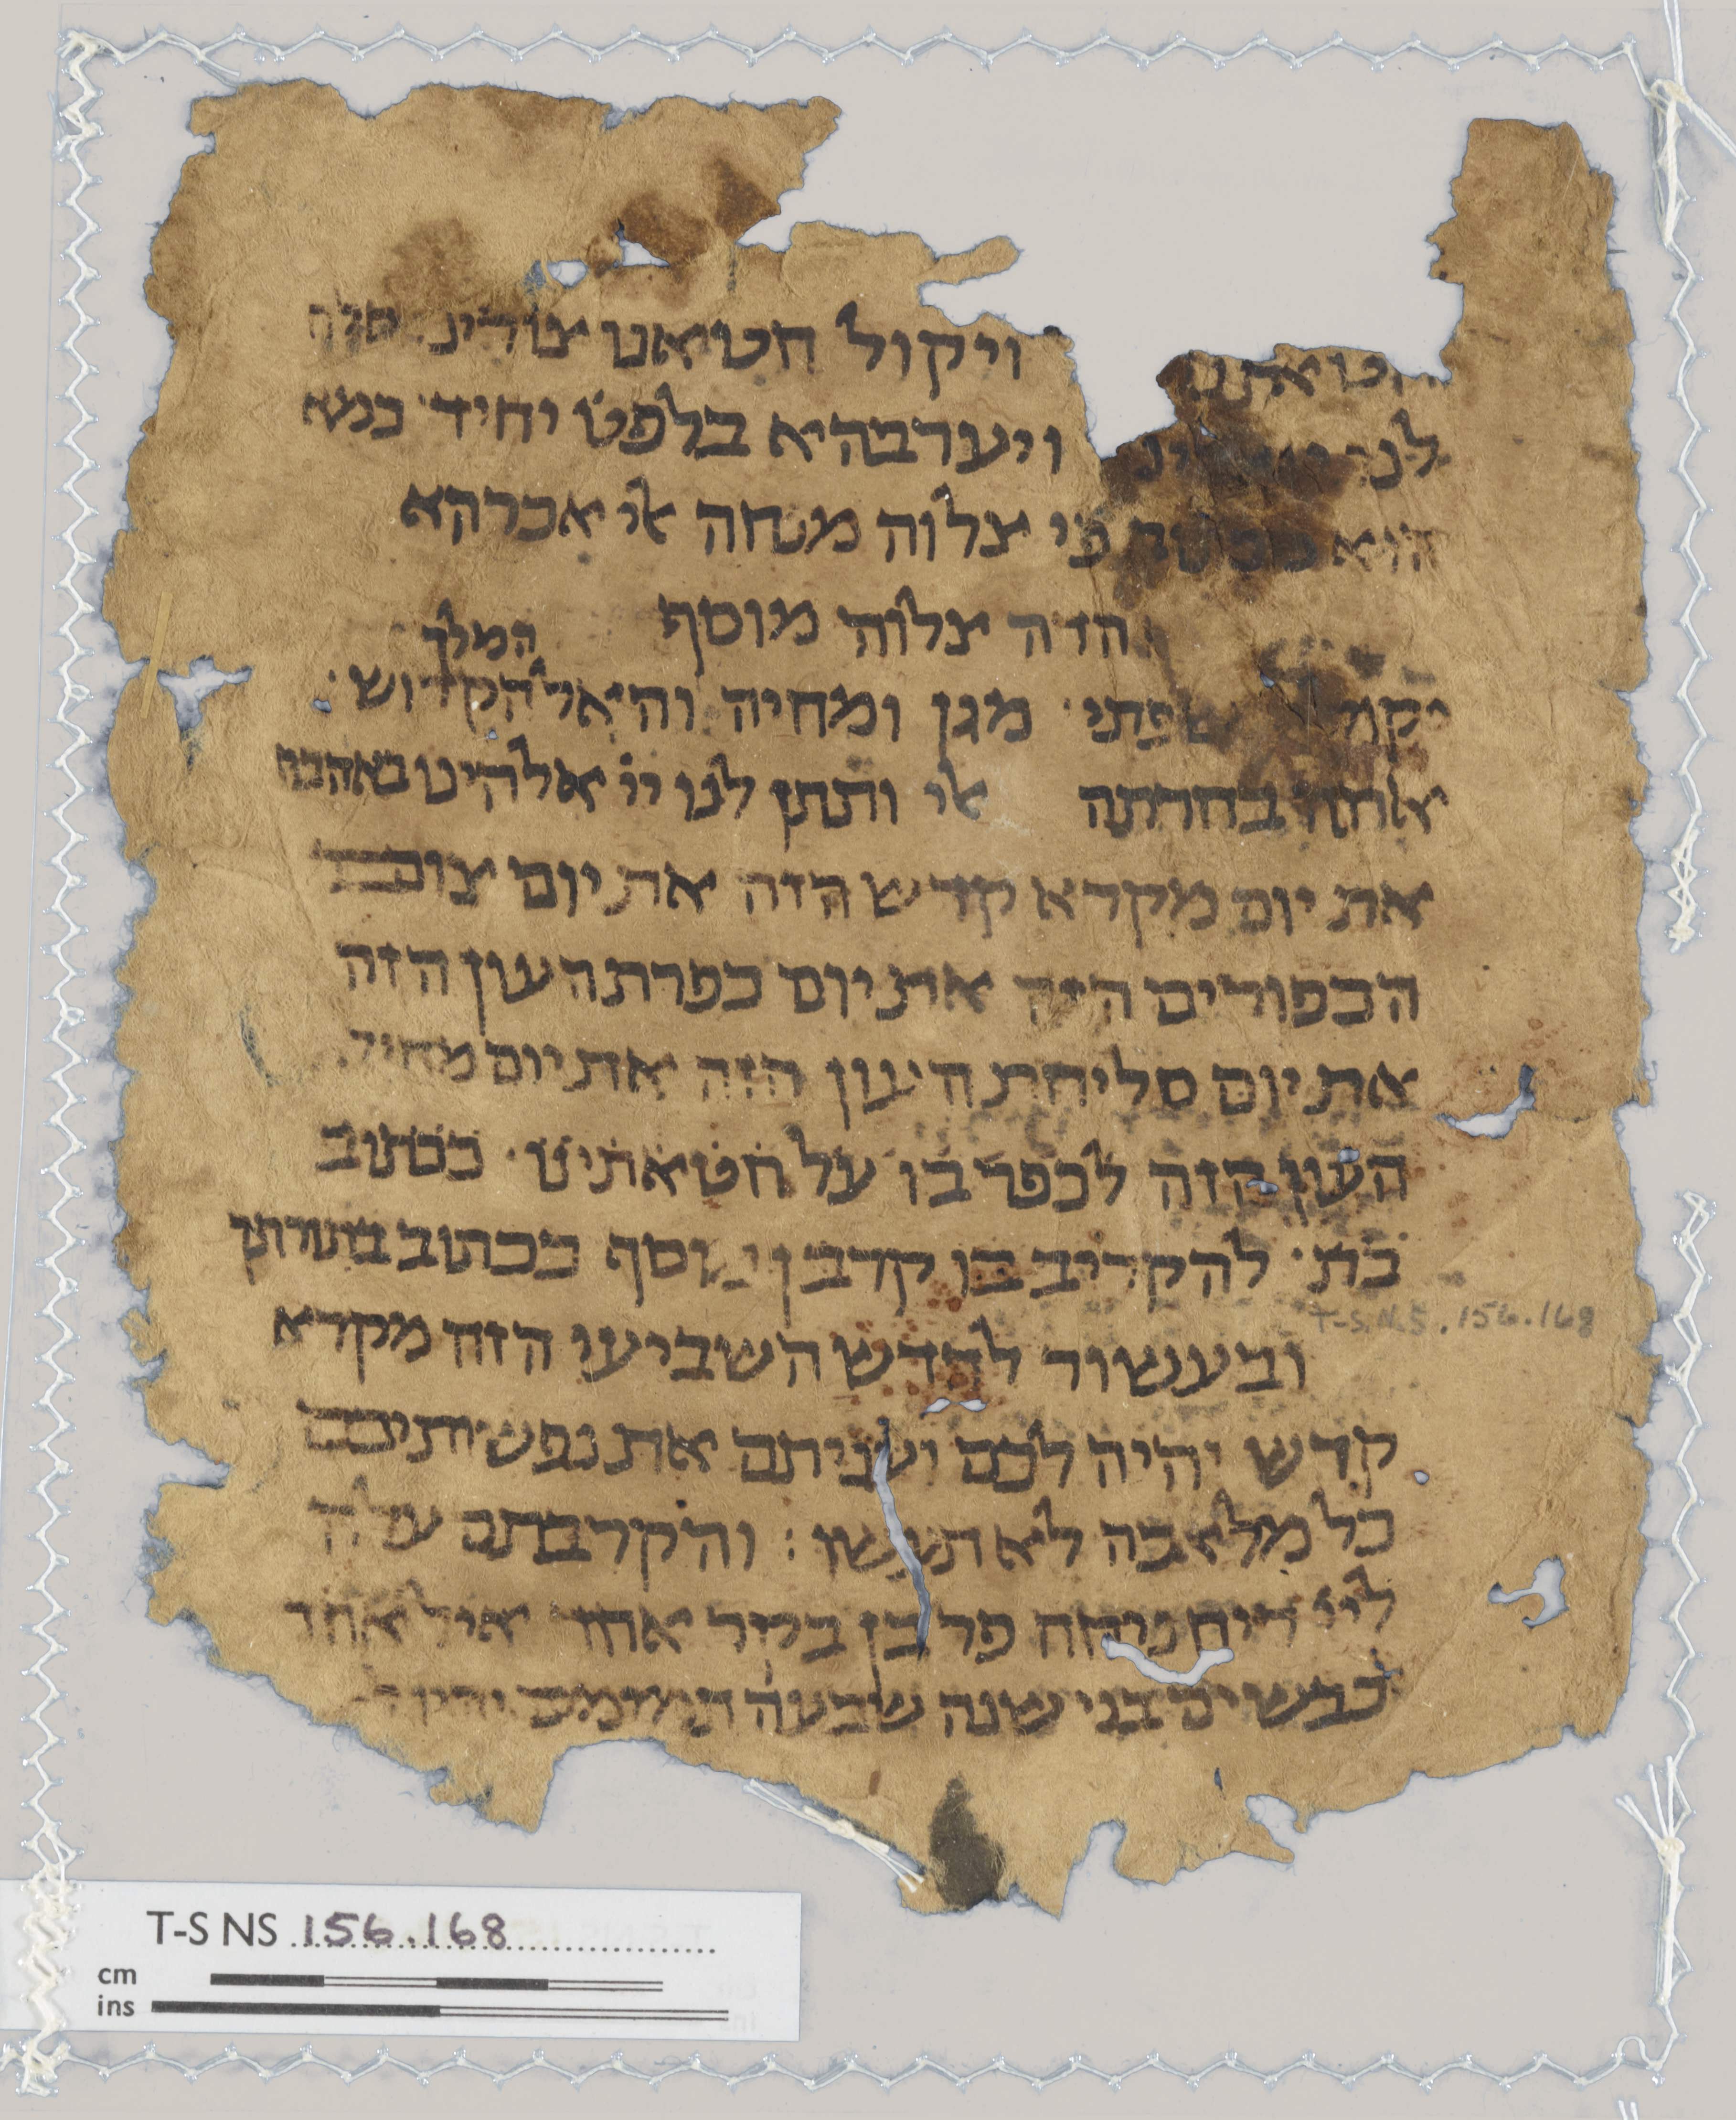 חטאתנו ויקול חטאנו צורינו סלח
לנו ויערבהא בלפט יחיד כמא
הוא פי צלוה מנחה אלי אכרהא
הדה צלוה מוסף
המלך
שפתי מגן ומחיה והאל הקדוש
אתה בחרתה אלי ותתן לנו ייי אלהינו באהבה
את יום מקרא קדש הזה את יום צום
הכפורים הזה את יום כפרת העון הזה
את יום סליחת העון הזה את יום מחילת
העון הזה לכפר בו על חטאתינו ככתוב
בת להקריב בו קרבן מוסף ככתוב בתורתך
ובעשור לחדש השביעי הזה מקרא
קדש יהיה לכם ועניתם את נפשותיכם
כל מלאכה לא תעשו : והקרבתם עולה
לייי ריח ניחח פר בן בקר אחד איל אחד
כבשים בני שנה שבעה תמימם יהיו
T-S.N.S. 156.168
T-S NS 156.168
cm
ins